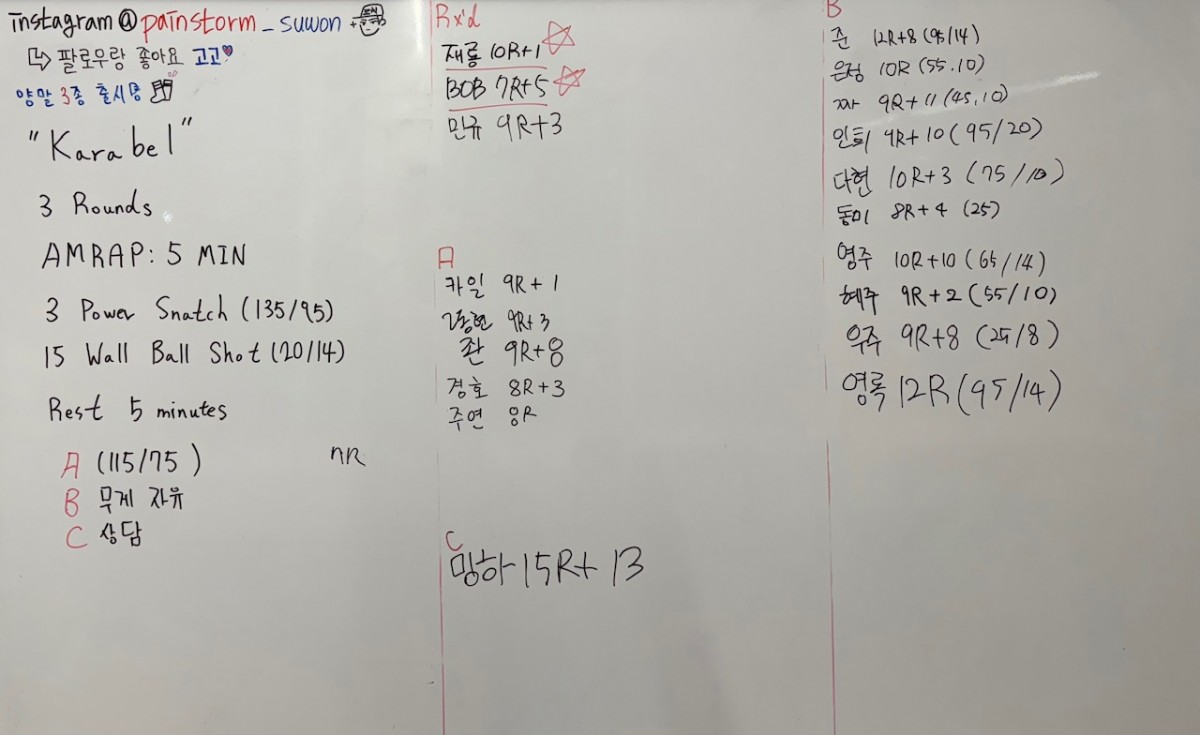 instagram@painstorm_suwon
팔로우랑 좋아요 고고
양말 3종 출시콩
"Karabel"
3 Rounds
AMRAP: 5 MIN
3 Power Snatch (135/95)
15 Wall Ball Shot (20/14)
Rest 5 minutes
A (115/75)
B 무게 자유
C 상담
nR
Rx'd
재롱 10R+1
BOB 7R+5
민규 9R+3
A
카일 9R+1
2동현 9R+3
좐 9R+8
경호 8R+3
주연 8R
C
밍하 15R+13
B
준 12R+8 (95/14)
은정 10R (55.10)
짜 9R+11 (45,10)
인퇴 9R+10 (95/20)
다현 10R+3 (75/10)
동미 8R+4 (25)
영주 10R+10 (65/14)
혜주 9R+2 (55/10)
우주 9R+8 (25/8)
영록 12R (95/14)